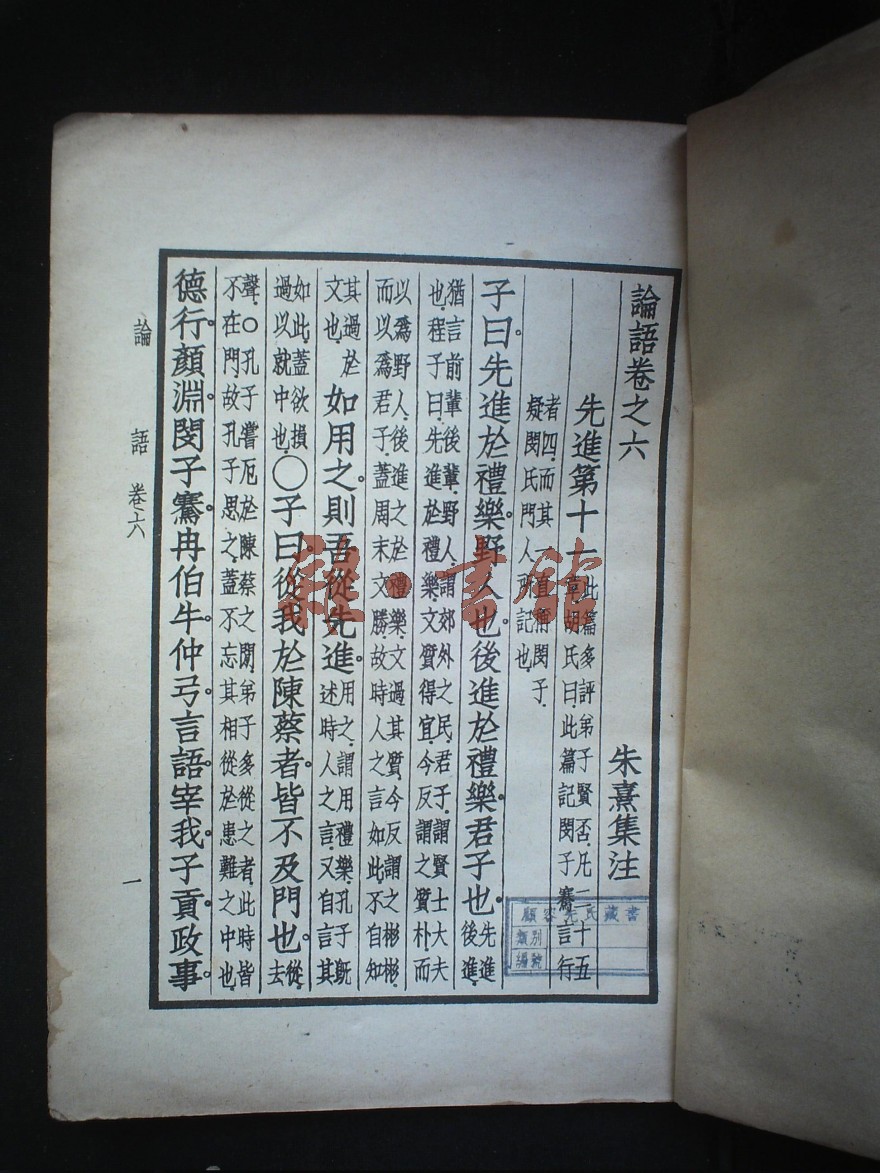 論語卷之六 朱熹集注
先進第十一 此篇多評弟子賢否.凡二十五
章.胡氏曰.此篇記閔子騫言行
者四.而其一直稱閔子.
疑閔氏門人所記也.
子曰。先進於禮樂。野人也。後進於禮樂。君子也。先進
後進.
猶言前輩後輩.野人.謂郊外之民.君子.謂賢士大夫
也.程子曰.先進於禮樂.文質得宜.今反謂之質朴.而
以爲野人.後進之於禮樂.文過其質.今反謂之彬彬.
而以爲君子.蓋周末文勝.故時人之言如此.不自知
其過於
文也.如用之。則吾從先進。用之.謂用禮樂.孔子既
述時人之言.又自言其
如此.蓋欲損
過以就中也.〇子曰。從我於陳蔡者。皆不及門也。從.
去
聲.〇孔子嘗厄於陳蔡之間.弟子多從之者.此時皆
不在門.故孔子思之.蓋不忘其相從於患難之中也.
德行。顏淵。閔子騫。冉伯牛。仲弓。言語。宰我。子貢。政事。
論語 卷六 一
氏藏書
類別
編號
雜·書館